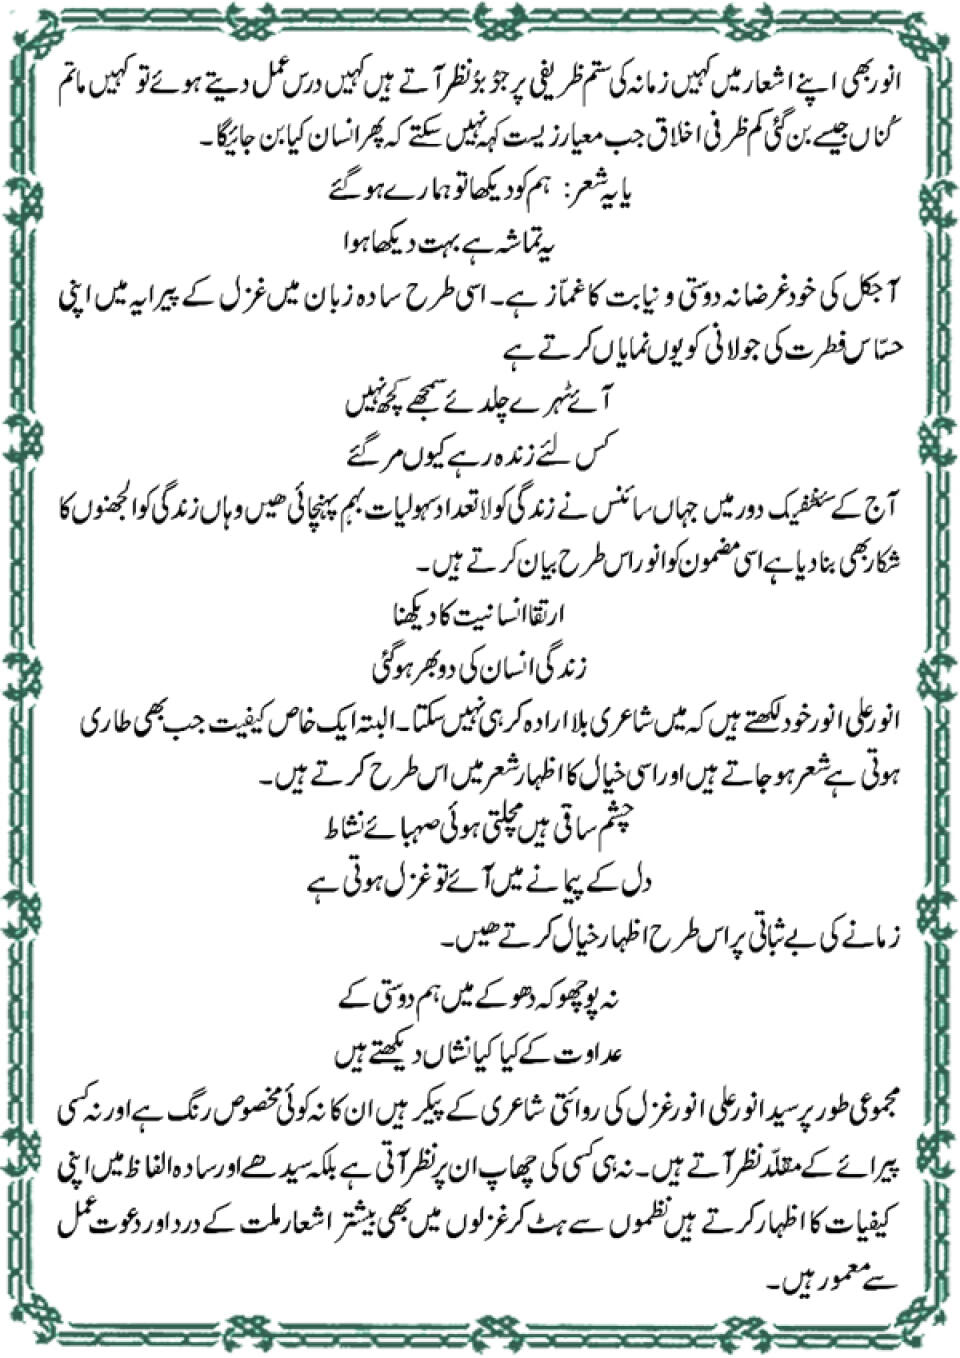 انور بھی اپنے اشعار میں کہیں زمانہ کی ستم ظریفی پر جڑ بڑ نظر آتے ہیں کہیں درس عمل دیتے ہوئے تو کہیں ماتم
کُناں جیسے بن گئی کم ظرفی اخلاق جب معیار زیست کہہ نہیں سکتے کہ پھر انسان کیا بن جائیگا۔
یا یہ شعر: ہم کو دیکھا تو ہمارے ہو گئے
یہ تماشہ ہے بہت دیکھا ہوا
آجکل کی خود غرضانہ دوستی و نیابت کا غمّاز ہے۔ اسی طرح سادہ زبان میں غزل کے پیرایہ میں اپنی
حسّاس فطرت کی جولانی کو یوں نمایاں کرتے ہے
آئے ٹہرے چلدئے سمجھے کچھ نہیں
کس لئے زندہ رہے کیوں مر گئے
آج کے سئنٹفیک دور میں جہاں سائنس نے زندگی کو لا تعداد سہولیات بہم پہنچائی ھیں وہاں زندگی کو الجھنوں کا
شکار بھی بنا دیا ہے اسی مضمون کو انور اس طرح بیان کرتے ہیں۔
ارتقا انسانیت کا دیکھنا
زندگی انسان کی دوبھر ہو گئی
انور علی انور خود لکھتے ہیں کہ میں شاعری بلا ارادہ کر ہی نہیں سکتا۔ البتہ ایک خاص کیفیت جب بھی طاری
ہوتی ہے شعر ہو جاتے ہیں اور اسی خیال کا اظہار شعر میں اس طرح کرتے ہیں۔
چشم ساقی ہیں مچلتی ہوئی صہبائے نشاط
دل کے پیمانے میں آئے تو غزل ہوتی ہے
زمانے کی بے ثباتی پر اس طرح اظہار خیال کرتے ھیں۔
نہ پوچھو کہ دھوکے میں ہم دوستی کے
عداوت کے کیا کیا نشاں دیکھتے ہیں
مجموعی طور پر سید انور علی انور غزل کی روائتی شاعری کے پیکر ہیں ان کا نہ کوئی مخصوص رنگ ہے اور نہ کسی
پیرائے کے مقلّد نظر آتے ہیں۔ نہ ہی کسی کی چھاپ ان پر نظر آتی ہے بلکہ سیدھے اور سادہ الفاظ میں اپنی
کیفیات کا اظہار کرتے ہیں نظموں سے ہٹ کر غزلوں میں بھی بیشتر اشعار ملت کے درد اور دعوت عمل
سے معمور ہیں۔